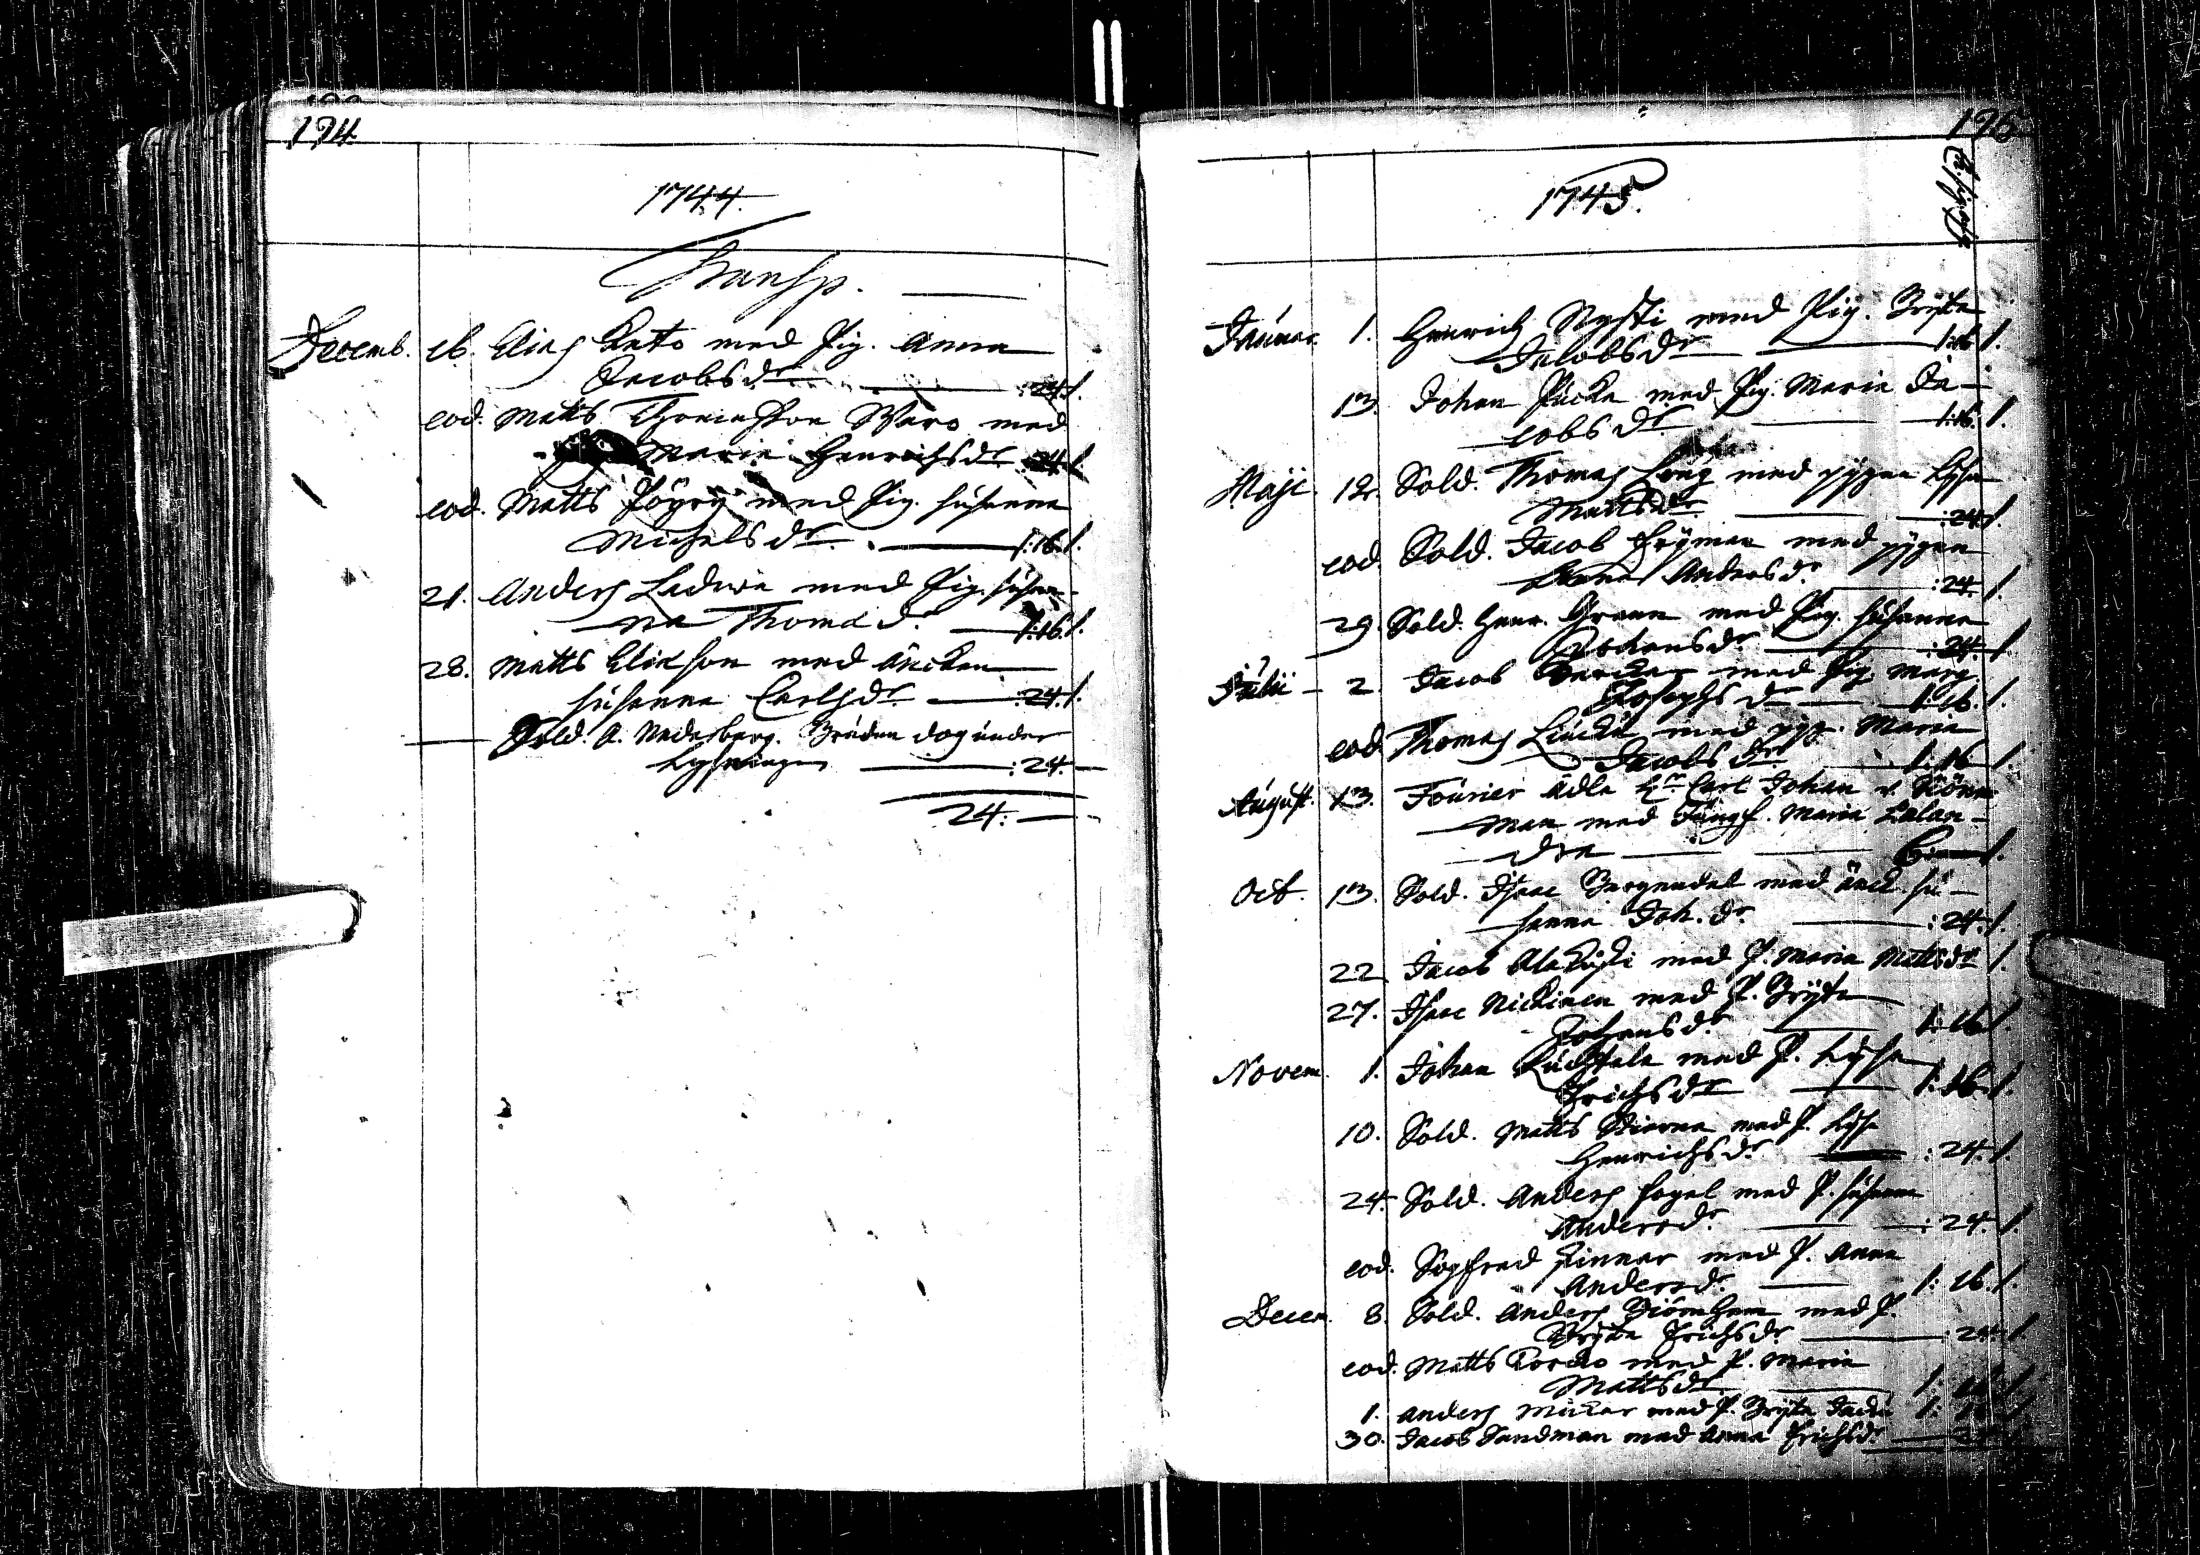 194.
1744.
Transp.
Decemb. 16. Elias Kato med Pig. Anna
Jacobsdr :24. 1.
eod. Matts Thomasson Waro med
Maria Henrichsdr :24. 1.
eod. Matts Pöyry med Pig. Susanna
Michelsdr. 1:16. 1.
21. Anders Ladwa med Pig. Susan-
na Thomædr. 1:16. 1.
28. Matts Elieson med änckan
Susanna Carlsdr :24. 1.
Sold. A. Nederberg. Bruden dog under
Lysningen :24.
24:
195
1745.
Januar. 1. Henrich Mysti med Pig. Bryta
Jacobsdr 1:16 1.
13. Johan Pucka med Pig. Maria Ja-
cobsdr 1:16. 1.
Maji. 12. Sold. Thomas Long med pygan Lysa
Mattsdr :24. 1.
eod. Sold. Jacob Fryman med pygan
Anna Andersdr. :24. 1.
29. Sold. Henr. Graan med Pig. Susanna
Johansdr. :24. 1
Julii 2 Jacob med Pig. Marg.
Josephsdr 1:16. 1.
eod. Thomas med pyg. Maria
Jacobsdr 1:16 1
August. 13. Fourier Ädla Hr Carl Johan v.
man med Jungf. Maria Lalan-
dra 6: 1.
Oct. 13. Sold. Isaac Bergendal med änck. Su-
sanna Joh.dr :24. 1.
22. Jacob Alakyski med P. Maria Mattsdr 1.
27. Isaac Nickinen med P. Bryta
Johansdr. 1:16 1.
Novem. 1. Johan med P. Lysa
Erichsdr 1:16. 1.
10. Sold. Matts Stierna med P. Lysa
Henrichsdr. :24. 1
24. Sold. Anders Fogel med P. Susanna
Andersdr. :24. 1.
eod. Sigfred Pinnar med P. Anna
Andersdr. 1:16. 1.
Decem. 8. Sold. Anders Biörnham med P.
Bryta Erichsdr. :24. 1.
eod. Matts Torcko med P. Maria
Mattsdr 1:16. 1.
1. Anders med P. Bryta
30. Jacob Sandman med Anna Erichsdr.